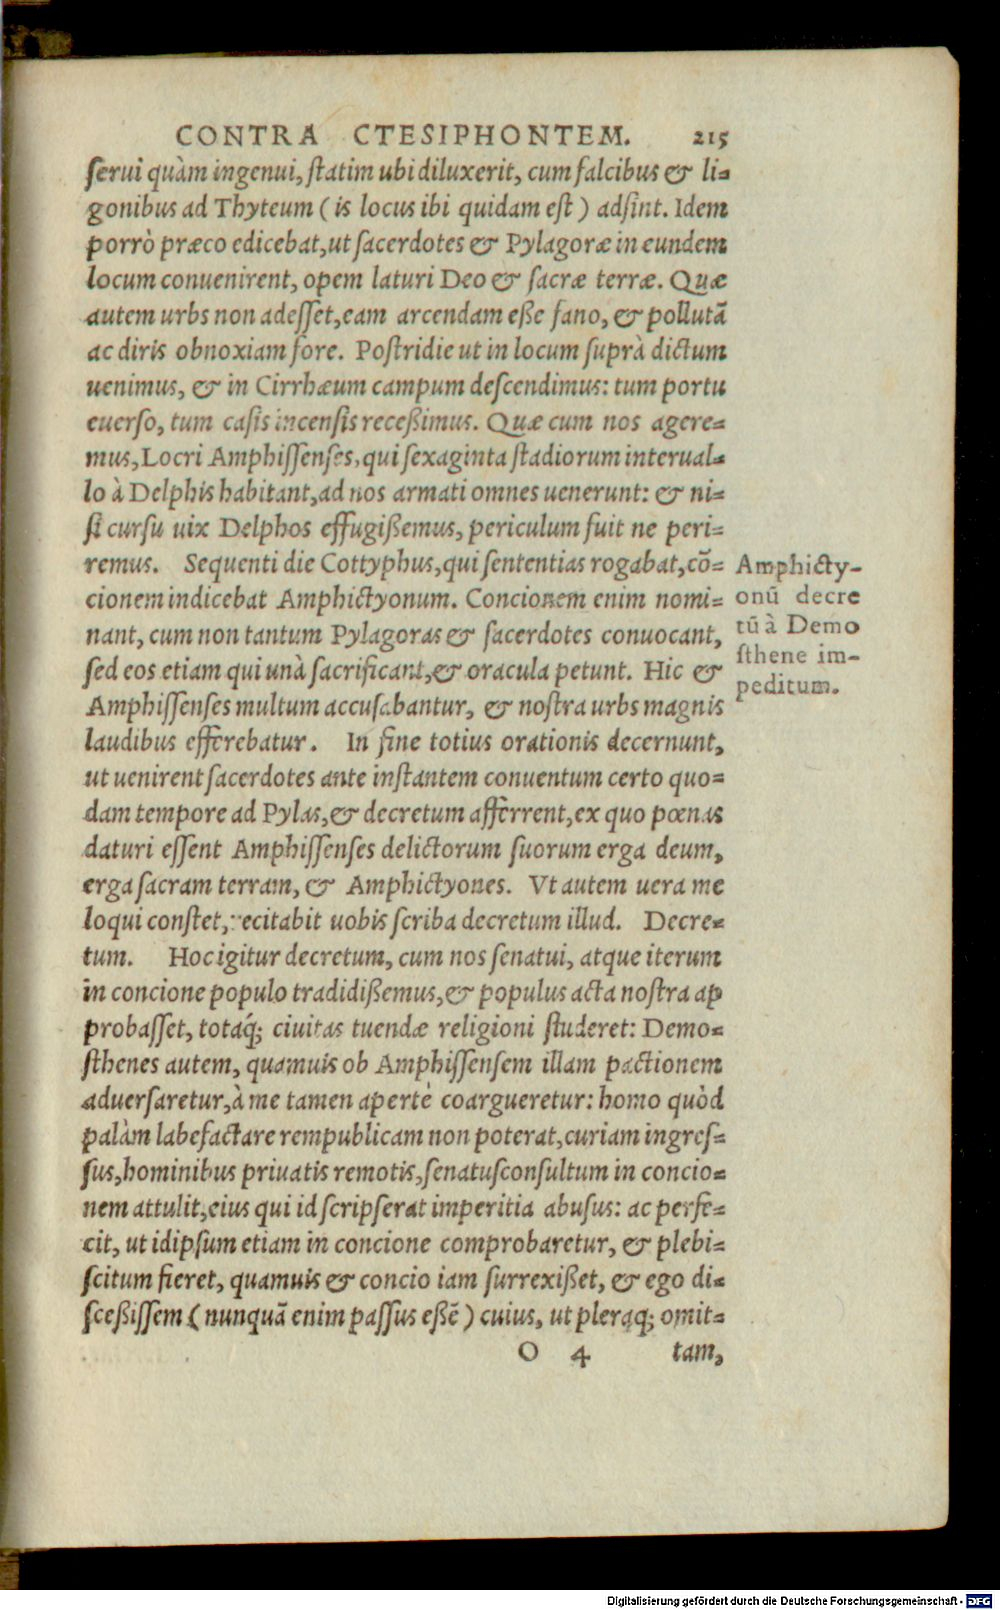 CONTRA CTESIPHONTEM. 215
serui quàm ingenui, statim ubi diluxerit, cum falcibus & li-
gonibus ad Thyteum ( is locus ibi quidam est ) adsint. Idem
porrò præco edicebat, ut sacerdotes & Pylagoræ in eundem
locum conuenirent, opem laturi Deo & sacræ terræ. Quæ
autem urbs non adesset, eam arcendam eße fano, & pollutā
ac diris obnoxiam fore. Postridie ut in locum suprà dictum
uenimus, & in Cirrhæum campum descendimus: tum portu
euerso, tum casis incensis receßimus. Quæ cum nos agere-
mus, Locri Amphissenses, qui sexaginta stadiorum interual-
lo à Delphis habitant, ad nos armati omnes uenerunt: & ni-
si cursu uix Delphos effugißemus, periculum fuit ne peri-
remus. Sequenti die Cottyphus, qui sententias rogabat, cō-
cionem indicebat Amphictyonum. Concionem enim nomi-
nant, cum non tantum Pylagoras & sacerdotes conuocant,
sed eos etiam qui unà sacrificant, & oracula petunt. Hic &
Amphissenses multum accusabantur, & nostra urbs magnis
laudibus efferebatur. In fine totius orationis decernunt,
ut uenirent sacerdotes ante instantem conuentum certo quo-
dam tempore ad Pylas, & decretum afferrent, ex quo pœnas
daturi essent Amphissenses delictorum suorum erga deum,
erga sacram terram, & Amphictyones. Vt autem uera me
loqui constet, recitabit uobis scriba decretum illud. Decre-
tum. Hoc igitur decretum, cum nos senatui, atque iterum
in concione populo tradidißemus, & populus acta nostra ap
probasset, totaq́; ciuitas tuendæ religioni studeret: Demo-
sthenes autem, quamuis ob Amphissensem illam pactionem
aduersaretur, à me tamen apertè coargueretur: homo quòd
palàm labefactare rempublicam non poterat, curiam ingres-
sus, hominibus priuatis remotis, senatusconsultum in concio-
nem attulit, eius qui id scripserat imperitia abusus: ac perfe-
cit, ut id ipsum etiam in concione comprobaretur, & plebi-
scitum fieret, quamuis & concio iam surrexißet, & ego di-
sceßissem ( nunquā enim passus eßē ) cuius, ut pleraq; omit-
O 4 tam,
Amphicty-
onū decre
tū à Demo
sthene im-
peditum.
Digitalisierung gefördert durch die Deutsche Forschungsgemeinschaft - DFG